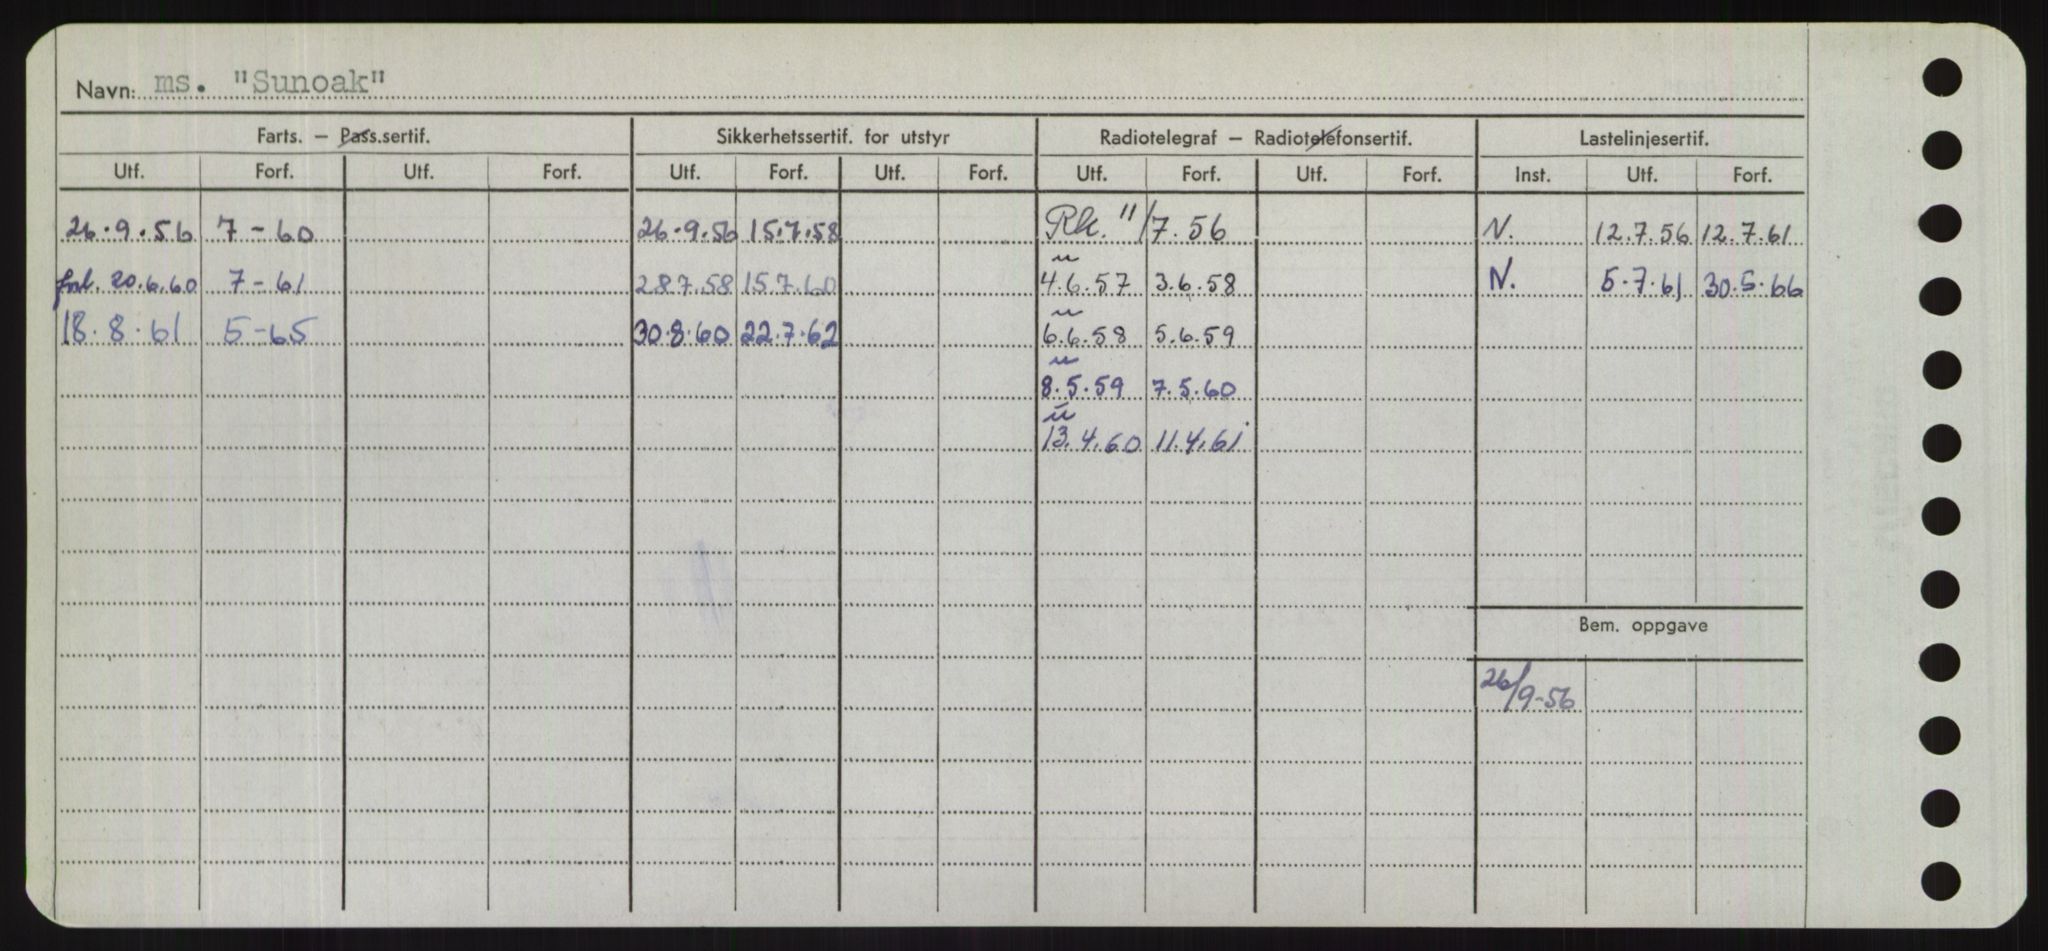 Navn: ms. "Sunoak"
Farts. — Pass.sertif. Sikkerhetssertif. for utstyr Radiotelegraf — Radiotelefonsertif. Lastelinjesertif.
Utf. Forf. Utf. Forf. Utf. Forf. Utf. Forf. Utf. Forf. Utf. Forf. Inst. Utf. Forf.
26.9.56 7-60 26.9.56 15.7.58 Rk. 11/7.56 N. 12.7.56 12.7.61
forl. 20.6.60 7-61 28.7.58 15.7.60 4.6.57 3.6.58 N. 5.7.61 30.5.66
18.8.61 5-65 30.8.60 22.7.62 6.6.58 5.6.59
8.5.59 7.5.60
13.4.60 11.4.61
Bem. oppgave
26/9-56